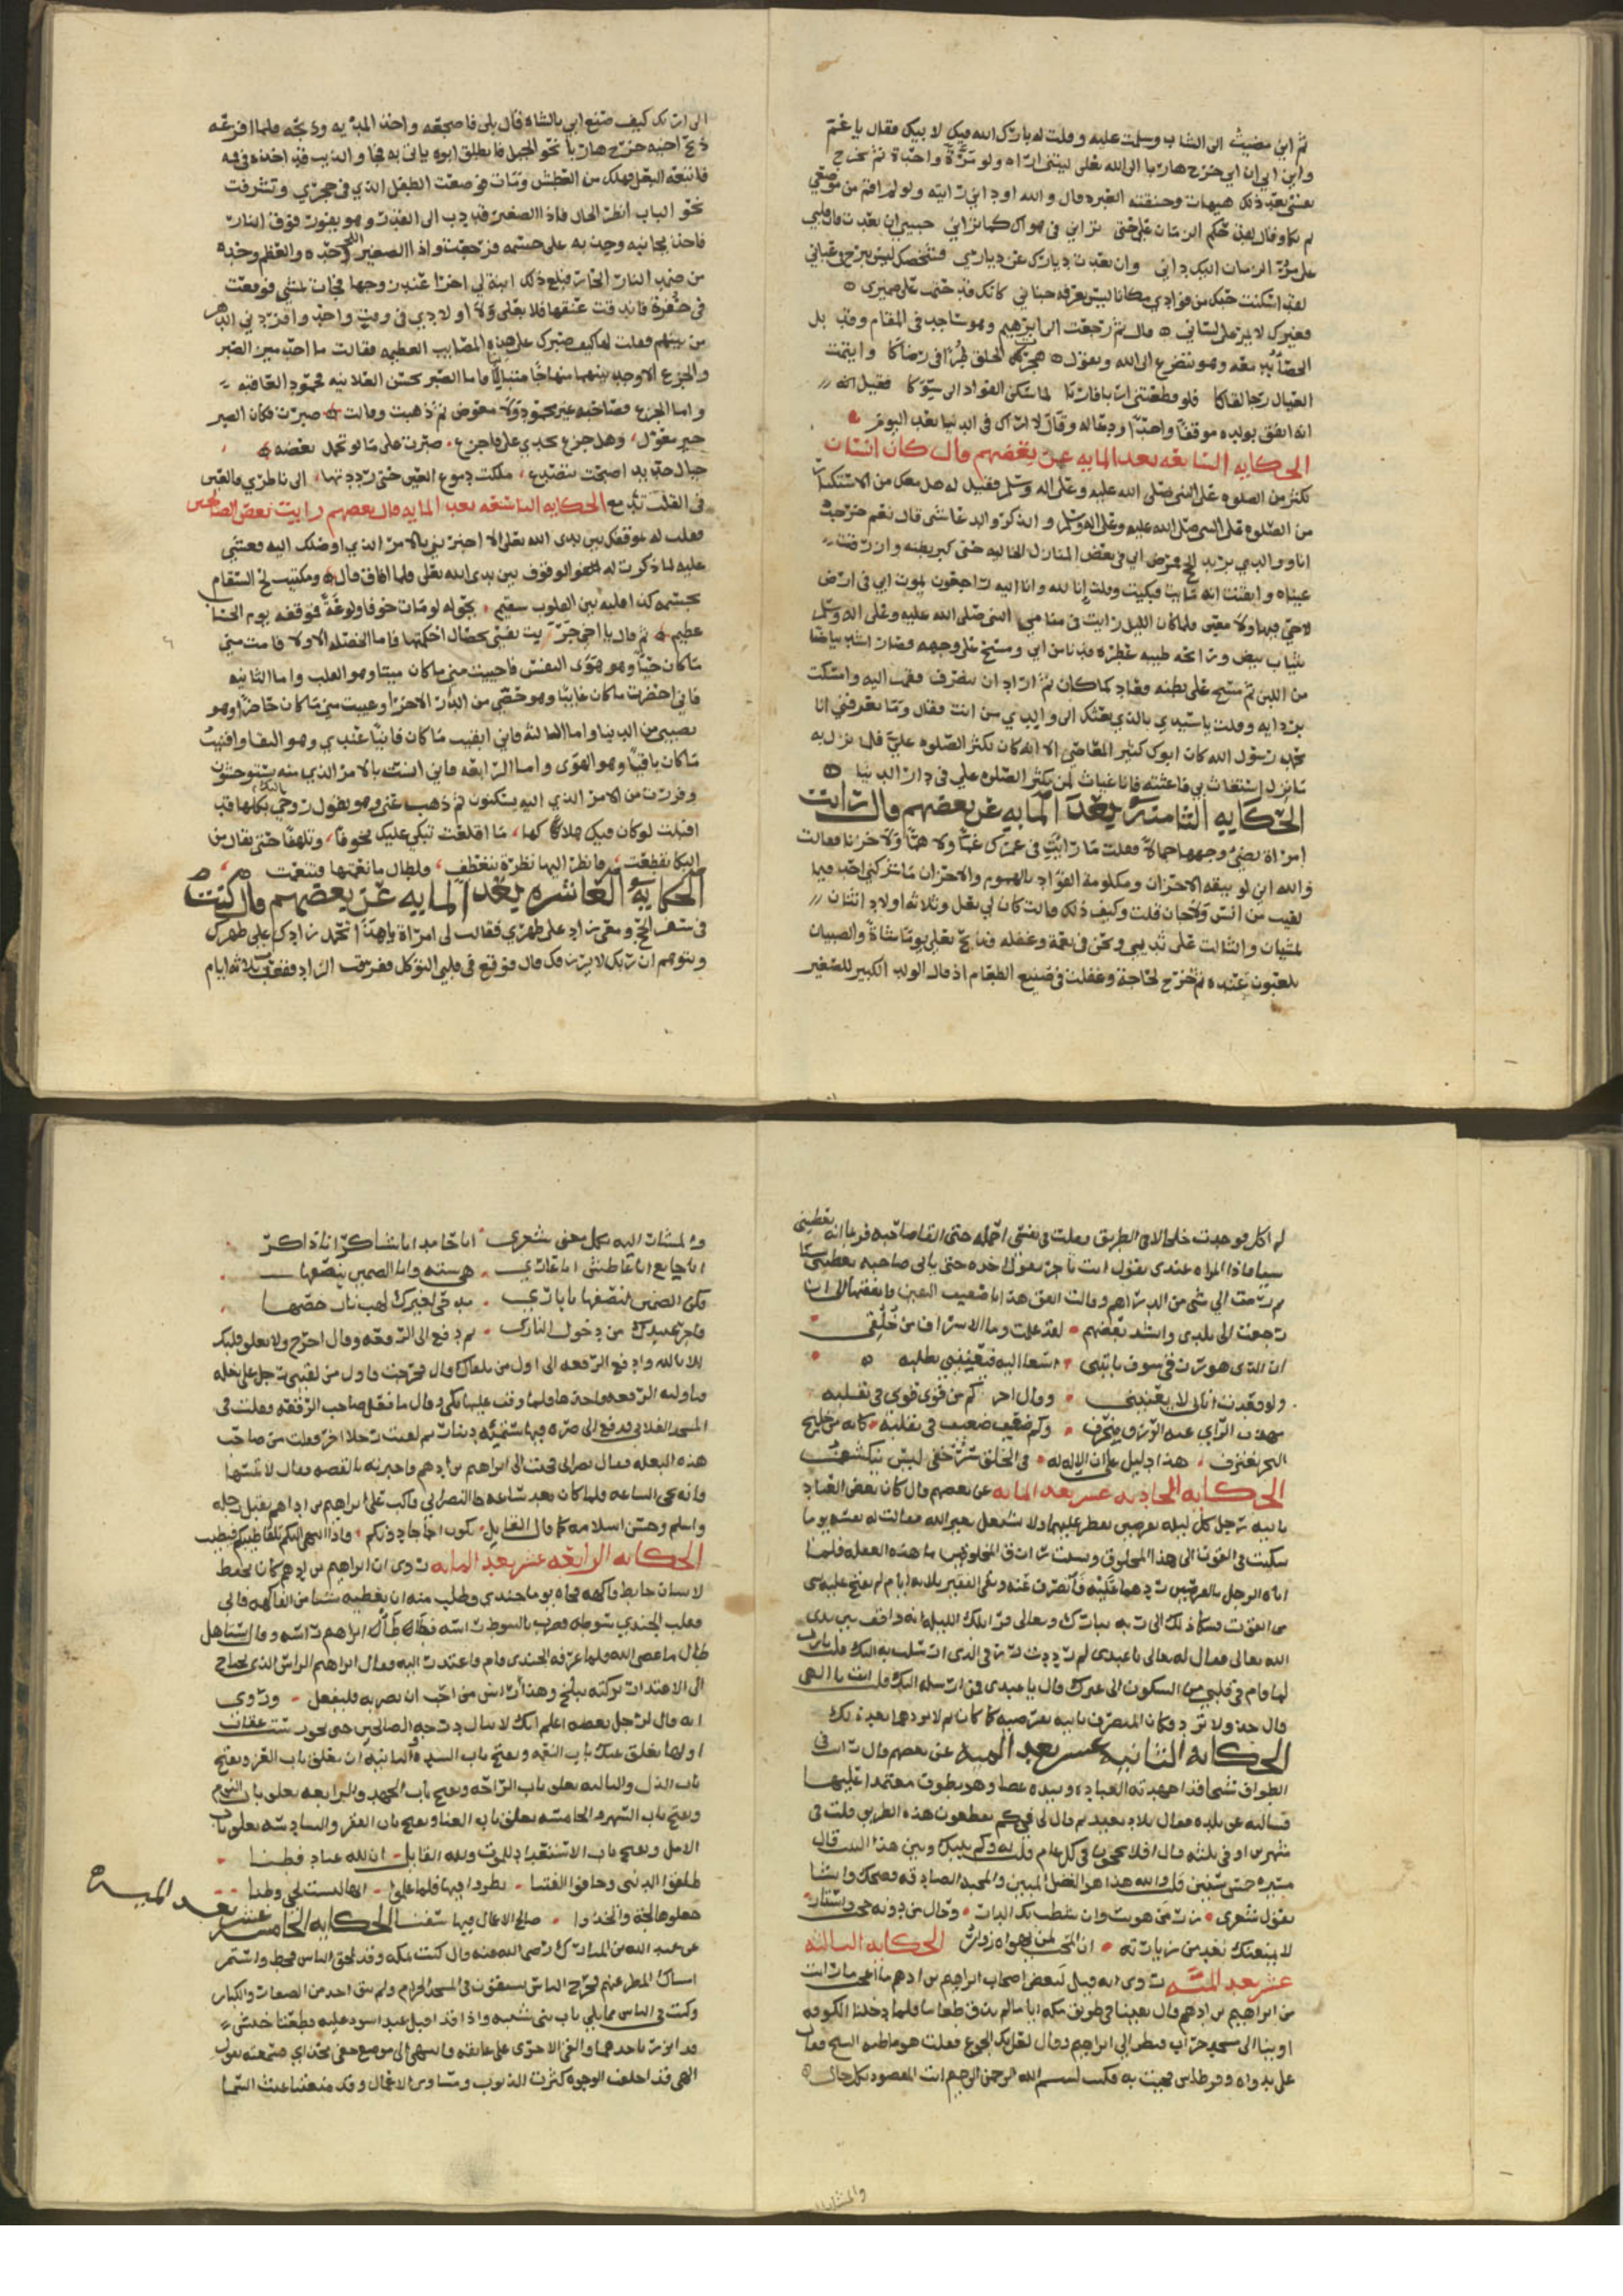 ثم اني مضيت الى الشاب وسلمت عليه وقلت له بارك الله فيك لابيك فقال يا عم
واين ابي ان ابي خرج هاربا الى الله تعالى ليتني اراه ولو مرة واحدة ثم تخرج
نفسي بعد ذلك هيهات وخنقته العبره وقال والله اود اني رايته ولو لم اقم من موضعي
ثم بكا وقال لعن حكم الزمان على حتى تراني في هواك كما تراني حبيبي ان بعدت فان قلبي
على مر الزمان اليك داني وان بعدت ديارك عن دياري فشخصك ليس يبرح عن عياني
لقد اسكنت حبك من فوادي مكانا ليس يعرفه جناني كانك قد ختمت على ضميري
فغيرك لا يمر على لساني قال ثم رجعت الى ابراهيم وهو ساجد في المقام وقد بل
الحصا بدمعه وهو يتضرع الى الله ويقول هجرت الخلق طرا في رضاكا وايتمت
العيال لكي اراكا فلو قطعتني اربا فاربا لما سكن الفواد الى سواكا فقيل انه
انه اتفق بولده موقفا واحدا ودعا له وقال لا اراك في الدنيا بعد اليوم
الحكايه السابعه بعد المايه عن بعضهم قال كان انسان
يكثر من الصلوه على النبي صلى الله عليه وعلى اله وسلم فقيل له هل معك من الاستكثار
من الصلوه على النبي صلى الله عليه وعلى اله وسلم وانذكر والد عاشى قال نعم خرجت
انا ووالدي نريد الحج فمرض ابي في بعض المنازل الخاليه حتى كبر بطنه وازرقت
عيناه وايقنت انه ميت فبكيت وقلت انا لله وانا اليه راجعون يموت ابي في ارض
لاحي فيها ولا معين فلما كان الليل رايت في منامي النبي صلى الله عليه وعلى اله وسلم
بثياب بيض ورائحه طيبه عطره فدنا من ابي ومسح على وجهه فصار اشد بياضا
من اللبن ثم مسح على بطنه فعاد كما كان ثم اراد ان ينصرف فقمت اليه وامسكت
بردايه وقلت يا سيدي بالذي بعثك الى والدي من انت فقال وما تعرفني انا
محمد رسول الله كان ابوك كثير المعاصي الا انه كان يكثر الصلوه علي فلما نزل به
ما نزل استغاث بي فاغثته فانا غياث لمن يكثر الصلوه علي في دار الدنيا
الحكايه الثامنه بعد المايه عن بعضهم قال رايت
امراة يضئ وجهها جمالا فقلت ما رايت في عمرك غما ولا هما ولا حزنا فقالت
والله اني لو بيقه الاحزان ومكلومة الفواد بالهموم والاحزان ما شركني احد فيما
لقيت من انس ولا جان قلت وكيف ذلك قالت كان لي بعل وثلاثه اولاد اثنان
يمشيان والثالث على ثديي ونحن في نعمة وغفله فذبح بعلي يوما شاة والصبيان
يلعبون عنده ثم خرج لحاجة وغفلت في صنيع الطعام اذ قال الولد الكبير للصغير
الى ارتك كيف صنع ابي بالشاه قال بلى فاضجعه واخذ المديه وذبحه فلما افزعه
ذبح اخيه خرج هاربا نحو الجبل فانطلق ابوه ياتي به فجا والذيب قد اخذه في فيه
فاتبعه البعل فهلك من العطش ومات فوضعت الطفل الذي في حجري وتشرفت
نحو الباب انظر الحال فاذا الصغير قد دب الى القدر وهو يفور فوق النار
فاخذ بجانبه وصب به على جسمه فرجعت واذا الصغير اللحم وحده والعظم وحده
من ضمد النار الحار فبلغ ذلك ابنة لي اخرا عند زوجها فجات تمشي فوقعت
في حفرة فاندقت عنقها فلا بعلي ولا اولادي في وقت واحد وافردني الدهر
من بينهم فقلت لها كيف صبرك على هذه المصايب العظيمه فقالت ما احد ميز الصبر
والجزع الا وجد بينهما منهاجا متباينا فاما الصبر بحسن العلانيه فمحمود العاقبه
واما الجزع فصاحبه غير محمود ولا معوض ثم ذهبت وقالت صبرت فكان الصبر
خير معول وهل جزع يجدي علي فاجزع صبرت على ما لو تحمل بعضه
جبال حديد اصبحت تتصدع ملكت دموع العين حتى رددتها الى ناظري فالعين
في القلب تدمع الحكايه التاسعه بعد المايه قال بعضهم رايت بعض الصالحين
فقلت له موقفك بين يدي الله تعالى الا اخبرتني بالامر الذي اوصلك اليه فغشي
عليه لما ذكرت له الوقوف بين يدي الله تعالى فلما افاق قال ومكتيب لح السقام
بجسمه كذا قلبه بين القلوب سقيم يحق له لو مات خوفا ولوعة فموقفه يوم الحساب
عظيم ثم قال يا اخي جربت نفسي بخصال احكمتها فاما الخصله الاولا فامت مني
ما كان حيا وهو هوى النفس فاحييت مني ما كان ميتا وهو القلب واما الثانيه
فاني احضرت ما كان غايبا وهو حظي من الدار الاخرا وغيبت مني ما كان حاضرا وهو
نصيبي من الدنيا واما الثالثة فاني ابقيت ما كان فانيا عندي وهو البقا وافنيت
ما كان باقيا وهو الهوى واما الرابعه فاني انست بالامر الذي منه يستوحشون
وفررت من الامر الذي اليه يسكنون ثم ذهب عني وهو يقول روحي بكلها قد
اقبلت لو كان فيك هلاكها ما اقلعت تبكي عليك تخوفا وتلهفا حتى يقال من
البكا تقطعت فانظر اليها نظرة بتعطف فلطال ما نعمتها فتنعمت
الحكايه العاشره بعد المايه عن بعضهم قال كنت
في سفر الحج ومعي زاد على ظهري فقالت لي امرأة ياهذا اتحمل زادك على ظهرك
وتتوهم ان ربك لا يرزقك قال فوقع في قلبي التوكل ففرقت الزاد فبقيت ثلاثه ايام
لم اكل فوجدت خلخالا في الطريق فقلت في نفسي احمله حتى القا صاحبه فربما انه يعطيني
شيا فاذا المراه عندي تقول انت تاجر تقول اخذه حتى ياتي صاحبه يعطيني شيا
ثم رمت الي شي من الدراهم وقالت انفق هذا ياضعيف اليقين فانفقتها الى ان
رجعت الى بلدي وانشد بعضهم لقد علمت وما الاسراف من خلقي
ان الذي هو رزقي سوف ياتيني اسعا اليه فيعييني تطلبه
ولو قعدت اتاني لا يعنيني وقال اخر كم من قوي قوي في تقلبه
مهذب الراي عنه الرزق ينحرف وكم ضعيف ضعيف في تقلبه كانه من خليج
البحر يغترف هذا دليل على ان الاله له في الخلق سر خفي ليس ينكشف
الحكايه الحاديه عشر بعد المايه عن بعضهم قال كان بعض العباد
ياتيه رجل كل ليله بقرصين يفطر عليهما ولا يشتغل بغير الله فقالت له نفسه يوما
سكنت في القوت الى هذا المخلوق ونسيت رازق المخلوقين ما هذه الغفله فلما
اتاه الرجل بالقرصين ردهما عليه فانصرف عنه وبقي الفقير ثلاثه ايام لم يفتح عليه بشي
من القوت فشكا ذلك الى ربه تبارك وتعالى فراى تلك الليله انه واقف بين يدي
الله تعالى فقال له تعالى ياعبدي لم رددت رزقي الذي ارسلت به اليك قلت يارب
لما قام في قلبي من السكون الى غيرك قال ياعبدي فمن ارسله اليك قلت انت يا الهي
قال خذ ولا ترد فكان المنصرف ياتيه بقرصيه كما كان ثم لا يردهما بعد ذلك
الحكايه الثانيه عشر بعد الميه عن بعضهم قال رايت في
الطواف شيخا قد اجهدته العباده وبيده عصا وهو يطوف معتمدا عليها
فسالته عن بلده فقال بلاد بعيد ثم قال لي في كم تقطعون هذه الطريق قلت في
شهرين او في ثلثه قال افلا تحجون في كل عام قلت له وكم بينك وبين هذا البيت قال
مسيرة خمس سنين قلت والله هذا هو الفضل المبين والمحبه الصادقه فضحك وانشا
يقول شعرى زر من هويت وان شطت بك الدار وحال من دونه حجب واستار
لا يمنعنك بعد من زيارته ان المحب لمن يهواه زوار الحكايه الثالثه
عشر بعد الميه روى انه قيل لبعض اصحاب ابراهيم بن ادهم ما اعجب ما رايت
من ابراهيم بن ادهم قال بقينا في طريق مكه اياما لم نذق طعاما فلما دخلنا الكوفه
اوينا الى مسجد خراب فنظر الي ابراهيم وقال لعل بك الجوع فقلت هو ما ظن الشيخ فقال
علي بدواه وقرطاس فجيت به فكتب بسم الله الرحمن الرحيم انت المقصود بكل حال
والمشار
والمشار اليه بكل معنى شعرى انا حامد انا شاكر انا ذاكر
انا جايع انا عاطش انا عاري هي سته وانا الضمين بنصفها
فكن الضمين لنصفها يا باري مدحي لغيرك لهب نار خضتها
فاجر عبيدك من دخول النار ثم دفع الى الرقعه وقال اخرج ولا تعلق قلبك
الا بالله وادفع الرقعه الى اول من تلقاك قال فخرجت فاول من لقيني رجل على بغله
فناولته الرقعه فاخذها فلما وقف عليها بكى وقال ما فعل صاحب الرقعه فقلت في
المسجد الفلاني فدفع الى صره فيها ستميه دينار ثم لقيت رجلا اخر فقلت من صاحب
هذه البغله فقال نصراني فجيت الى ابراهيم بن ادهم فاخبرته بالقصه فقال لا تمسها
فانه يجي الساعه فلما كان بعد ساعه جا النصراني فاكب على ابراهيم بن ادهم يقبل رجله
واسلم وحسن اسلامه كما قال القايل
الحكايه الرابعه عشر بعد المايه روى ان ابراهيم بن ادهم كان يحفظ
لانسان حايط فاكهه فجاه يوما جندي وطلب منه ان يعطيه شيا من الفاكهه فابى
فقلب الجندي سوطه فضربه بالسوط راسه فطاطا ابراهيم راسه وقال
طال ما عصى الله فلما عرفه الجندي قام واعتذر اليه فقال ابراهيم الراس الذي يحتاج
الى الاعتذار تركته ببلخ وهذا راس من احب ان يضربه فليفعل وروي
انه قال لرجل بعضه اعلم انك لا تنال درجه الصالحين حتى تجوز ست عقبات
اولها تغلق عنك باب النعمه وتفتح باب الشده الثانيه ان تغلق باب العز وتفتح
باب الذل والثالثه تغلق باب الراحه وتفتح باب الجهد والرابعه تغلق باب النوم
وتفتح باب السهر والخامسه تغلق باب الغنا وتفتح باب الفقر والسادسه تغلق باب
الامل وتفتح باب الاستعداد للموت ولله القايل ان لله عباد فطنا
طلقوا الدنيا وخافوا الفتنا نظروا فيها فلما علموا انها ليست لحي وطنا
جعلوها لجة واتخذوا صالح الاعمال فيها سفنا الحكايه الخامسه عشر بعد الميه
عن عبد الله بن المبارك رضي الله عنه قال كنت بمكه وقد لحق الناس قحط واستمر
امساك المطر عنهم فخرج الناس يستسقون في المسجد الحرام ولم يبق احد من الصغار والكبار
وكنت في الناس مما يلي باب بني شيبه واذا قد اقبل عبد اسود عليه قطعتا خيش
قد اتزر باحدهما والقى الاخرى على عاتقه وانتهى الى موضع خفي بحذاي فسمعته يقول
الهي قد اخلقت الوجوه كثرت الذنوب ومساوي الاعمال وقد منعتنا غيث السما